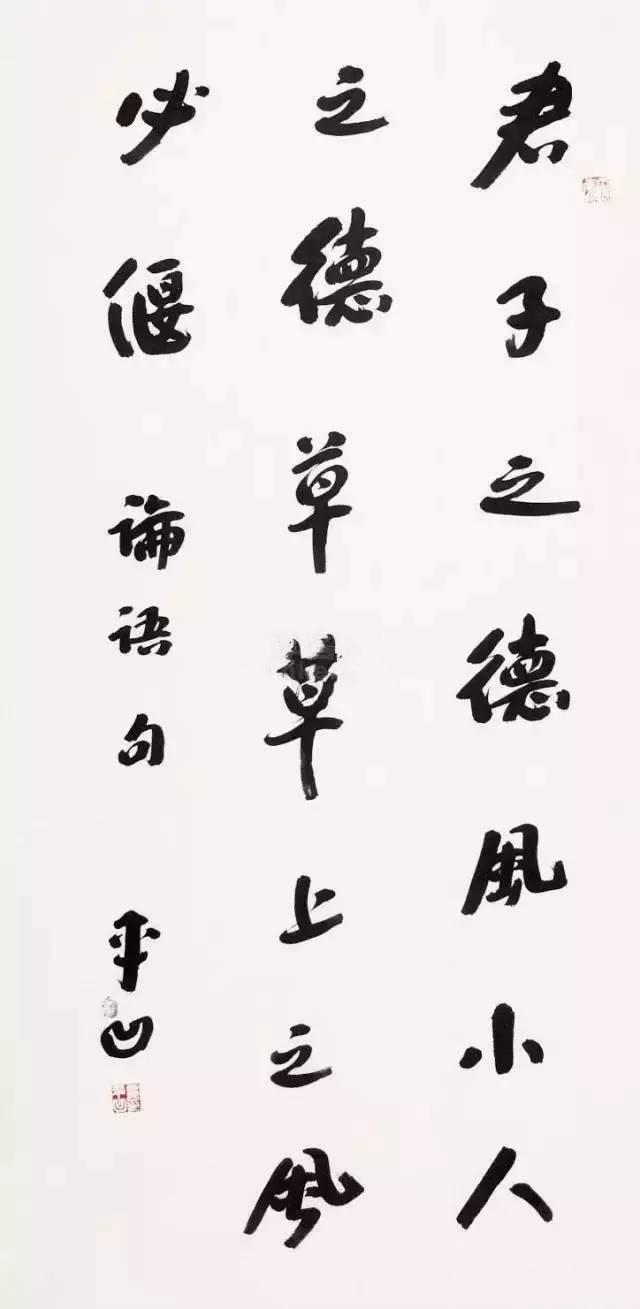 君子之德風小人
之德草草上之風
必偃 論語句 平凹